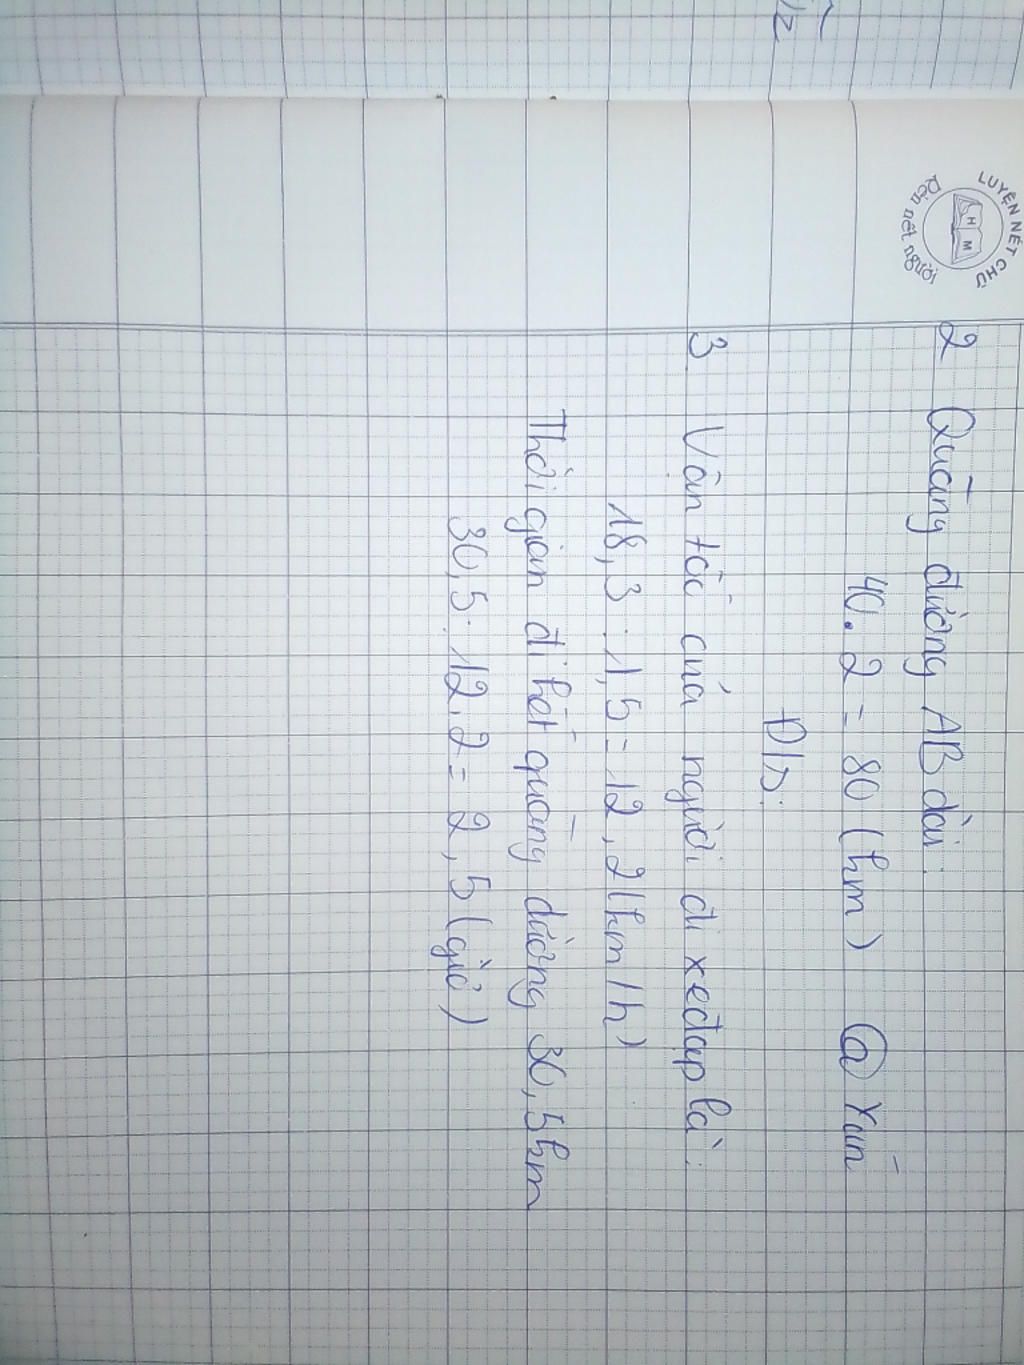 LUYỆN NÉT CHỮ
H M
Rèn nết người
2 Quãng đường AB dài:
40. 2 = 80 (km) @ Xuń
Đ/s:
3 Vận tốc của người đi xe đạp là:
18,3 : 1,5 = 12,2 (km/h)
Thời gian đi hết quãng đường 30,5 km
30,5 : 12,2 = 2,5 (giờ)